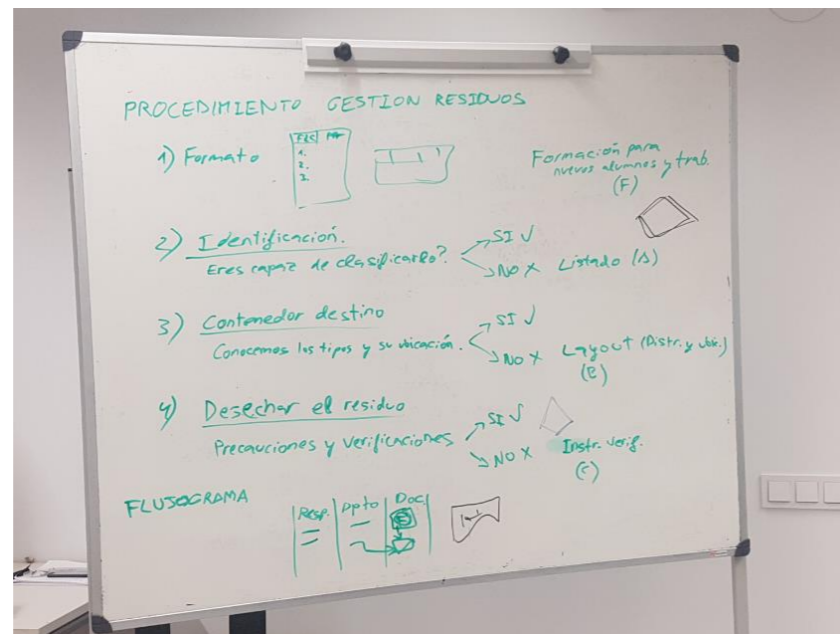 PROCEDIMIENTO GESTION RESIDUOS
1) Formato
1.
2.
3.
Formación para
nuevos alumnos y trab.
(F)
2) Identificación.
Eres capaz de clasificarlo?
SI ✓
NO X Listado (A)
3) Contenedor destino
Conocemos los tipos y su ubicación.
SI ✓
NO X Layout (Distr. y ubic.)
(B)
4) Desechar el residuo
Precauciones y verificaciones
SI ✓
NO X Instr. verif.
(C)
FLUJOGRAMA
Resp. Dpto Doc.